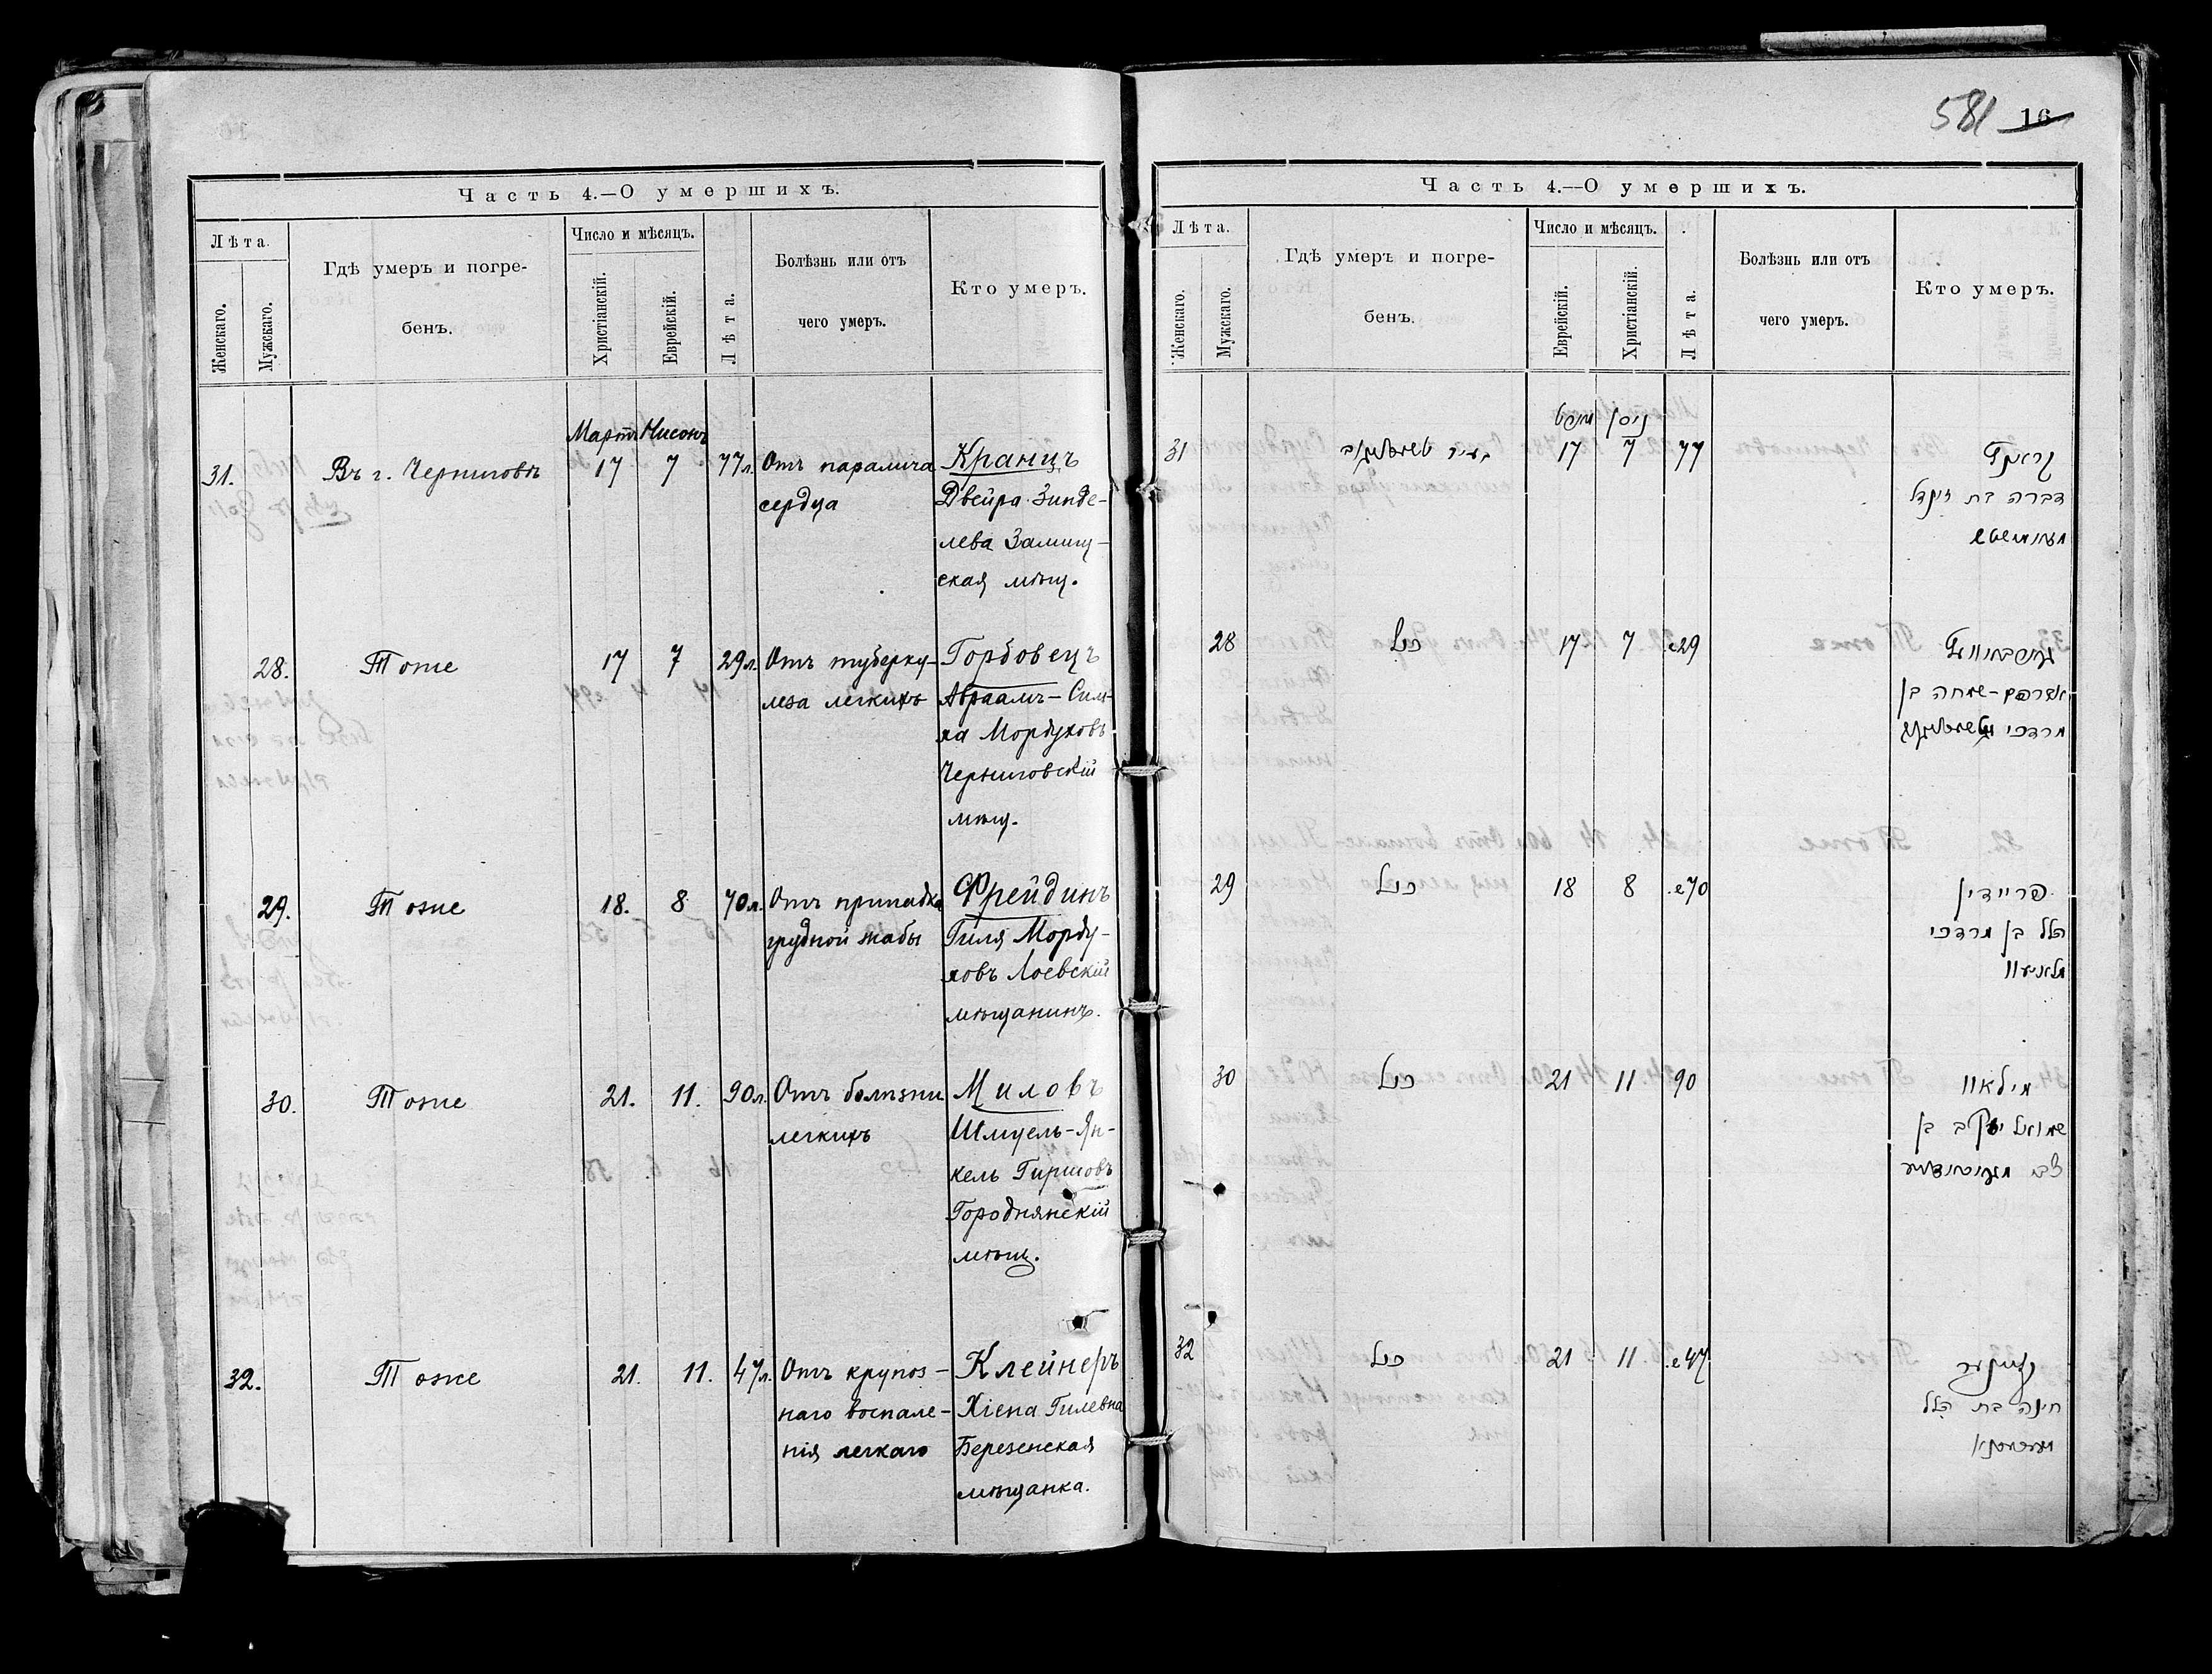 581 16
Часть 4.—О умершихъ.
Лѣта.
Женскаго.
Мужскаго.
Гдѣ умеръ и погре-
бенъ.
Число и мѣсяцъ.
Христіанскій.
Еврейскій.
Лѣта.
Болѣзнь или отъ
чего умеръ.
Кто умеръ.
Мартъ Нисонъ
31. Въ г. Черниговѣ 17 7 77л. Отъ паралича
сердца
Кранцъ
Двейра Зинде-
лева
ская мѣщ.
28. Тоже 17 7 29л. Отъ туберку-
леза легкихъ
Горбовецъ
Авраамъ-Сим-
ха Мордуховъ
Черниговскій
мѣщ.
29. Тоже 18. 8 70л. Отъ припадка
грудной жабы
Фрейдинъ
Гиля Морду-
ховъ Лоевскій
мѣщанинъ.
30. Тоже 21. 11. 90л. Отъ болѣзни
легкихъ
Миловъ
Шмуель-Ян-
кель Гиршовъ
Городнянскій
мѣщ.
32. Тоже 21. 11. 47л. Отъ крупоз-
наго воспале-
нія легкаго
Клейнеръ
Хіена Гилевна
Березенская
мѣщанка.
Часть 4.—О умершихъ.
Лѣта.
Женскаго.
Мужскаго.
Гдѣ умеръ и погре-
бенъ.
Число и мѣсяцъ.
Еврейскій.
Христіанскій.
Лѣта.
Болѣзнь или отъ
чего умеръ.
Кто умеръ.
ניסן
31 17 7 77
דברה בת זינדל
28 כנל 17 7 29
אברהם-שמחה בן
מרדכי
29 כנל 18 8 70
פריידין
הלל בן מרדכי
30 כנל 21 11 90
מילאוו
שמואל יעקב בן
צבי
32 כנל 21 11 47
חינה בת הלל